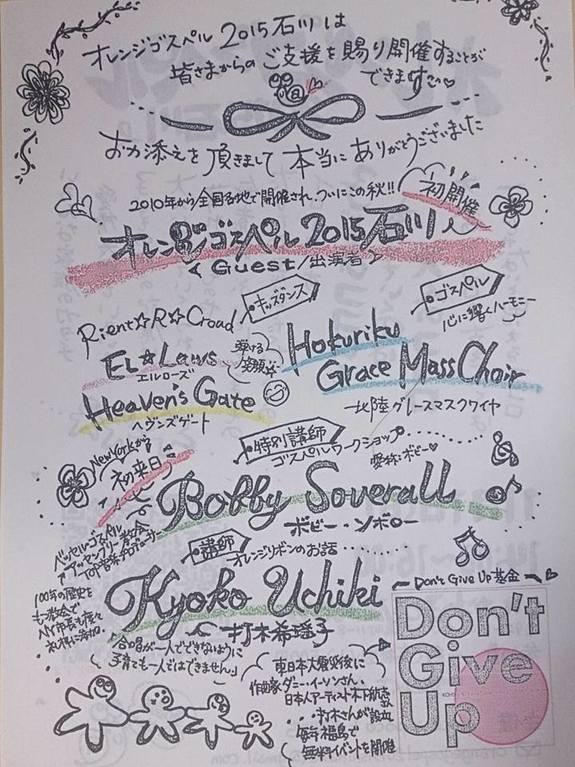 オレンジゴスペル 2015石川は
皆さまからの ご支援を賜り開催することが
できます
お力添えを頂きまして 本当に ありがとうございました
2010年から全国各地で開催され、ついにこの秋!!
初開催
オレンジゴスペル 2015石川
Guest/出演者
キッズダンス
ゴスペル
心に響くハーモニー
Rient☆R☆Croad
EL☆Laws
エルローズ
弾ける
笑顔
Hokuriku
Grace Mass Choir
北陸グレースマスクワイヤ
Heaven's Gate
ヘヴンズゲート
特別講師
ゴスペルワークショップ
愛称:ボビー♡
New Yorkから
初来日
Bobby Soverall
ボビー・ソボロー
講師
オレンジリボンのお話
100年の歴史を
もつ教会で
NY市長も
Kyoko Uchiki
打木希瑶子
合唱が一人でできないように
子育ても一人ではできません」
Don't Give Up基金
Don't
Give
Up
東日本大震災後に
作曲家ダニー・イーソンさん、
日本人アーティスト木下航志さん
打木さんが設立
毎年福島で
無料イベントを開催